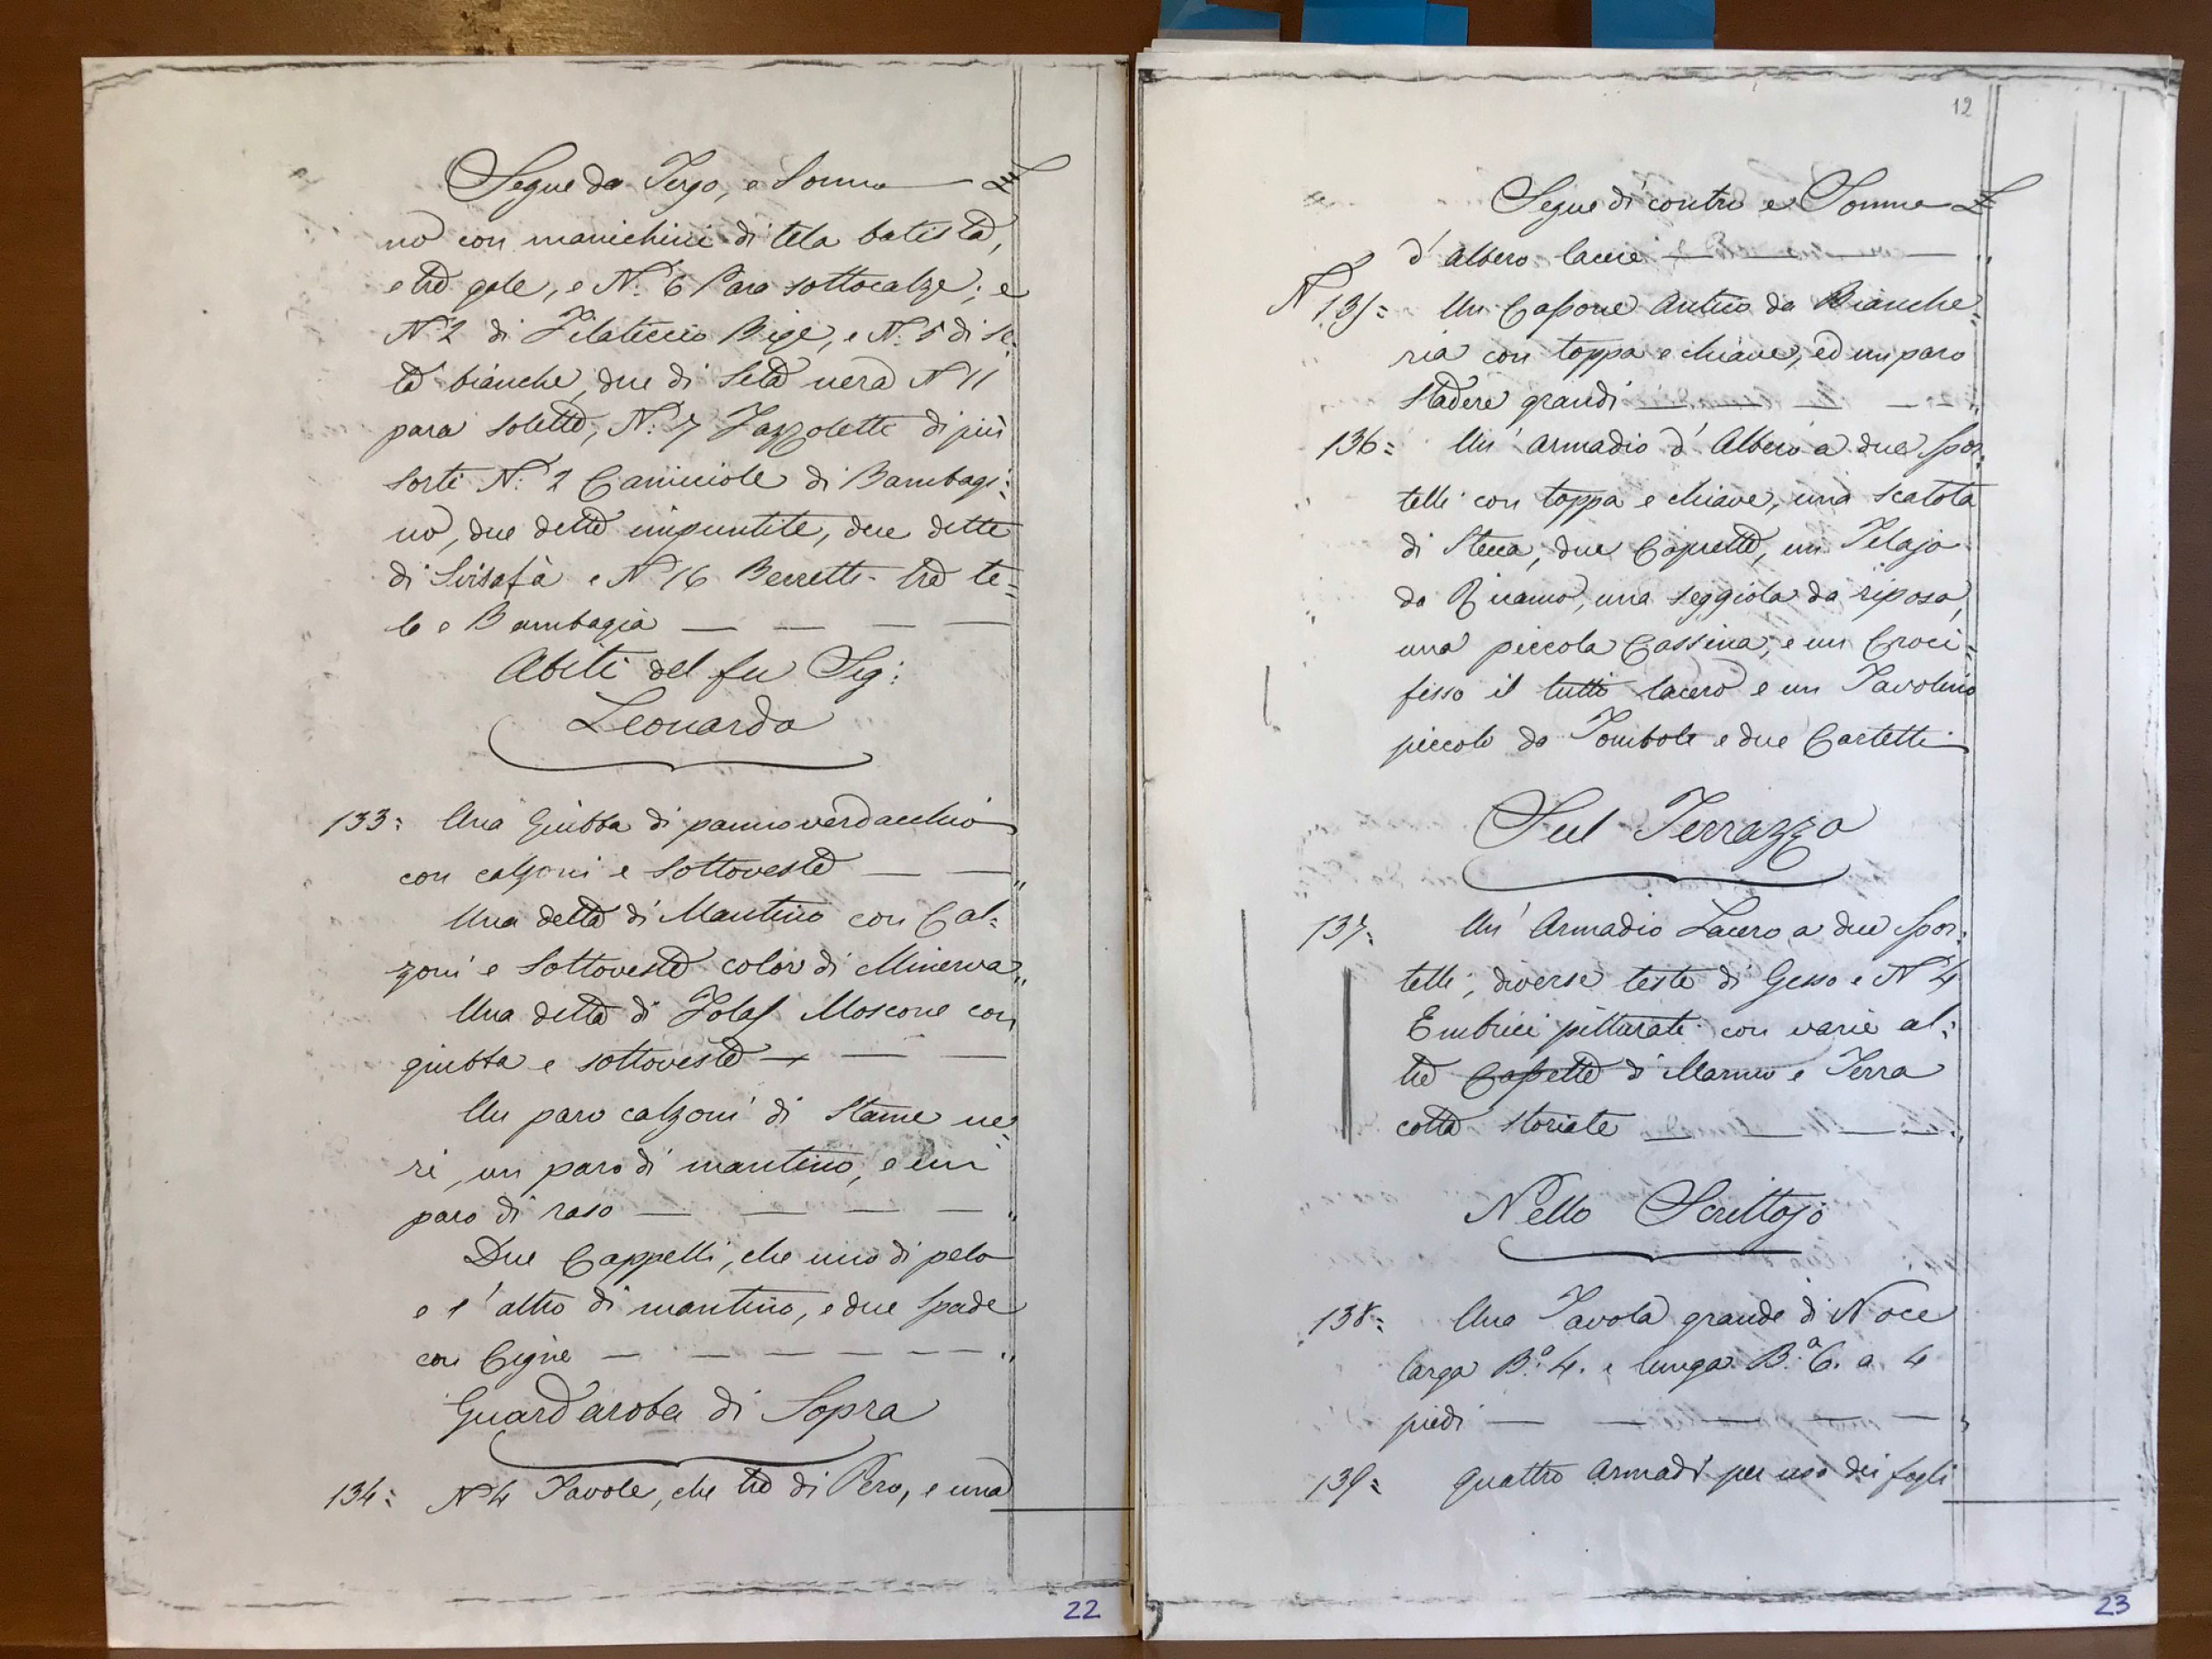 Segue da Tergo, e Somma £
no con manichini di tela batista,
e tre gole, e N.° 6 Para sottocalze; e
N.° 2 di Filaticcio Bige, e N.° 5 di se=
ta bianche, due di Seta nera N.° 11
para solette, N.° 7 Fazzolette di più
Sorti N.° 2 Camiciole di Bambagi=
no, due dette impuntite, due dette
di e N.° 16 Berrette tra te=
le e Bambagia
Abiti del fu Sig:
Leonardo
133= Una Giubba di panno verdacchio
con calzoni e Sottoveste "
Una detta di Mantino con Cal=
zoni e Sottoveste color di Minerva "
Una detta di Moscone con
giubba e sottoveste
Un paro calzoni di Stame ne=
ri, un paro di mantino, e un
paro di raso "
Due Cappelli, che uno di pelo
e l'altro di mantino, e due Spade
con Cigne "
Guardaroba di Sopra
134= N.° 4 Tavole, che tre di Pero, e una
22
12
Segue di contro e Somma £
d'albero lacere "
N 135= Un Cassone Antico da Bianche=
ria con toppa e chiave, ed un paro
Stadere grandi "
136= Un' Armadio d'Albero a due Spor=
telli con toppa e chiave, una scatola
di Stecca, due Cassette, un Telajo
da Ricamo, una seggiola da riposo,
una piccola Cassina, e un Croci=
fisso il tutto lacero e un Tavolino
piccolo da Tombole e due Cartelli
Sul Terrazzo
137= Un' Armadio Lacero a due Spor=
telli, diverse teste di Gesso e N.° 4
Embrici pitturati con varie al=
tre Cassette di Marmo e Terra
cotta storiate "
Nello Scrittojo
138= Una Tavola grande di Noce
larga B.a 4. e lunga B.a 6. a 4
piedi "
139= Quattro Armadi per uso dei fogli
23